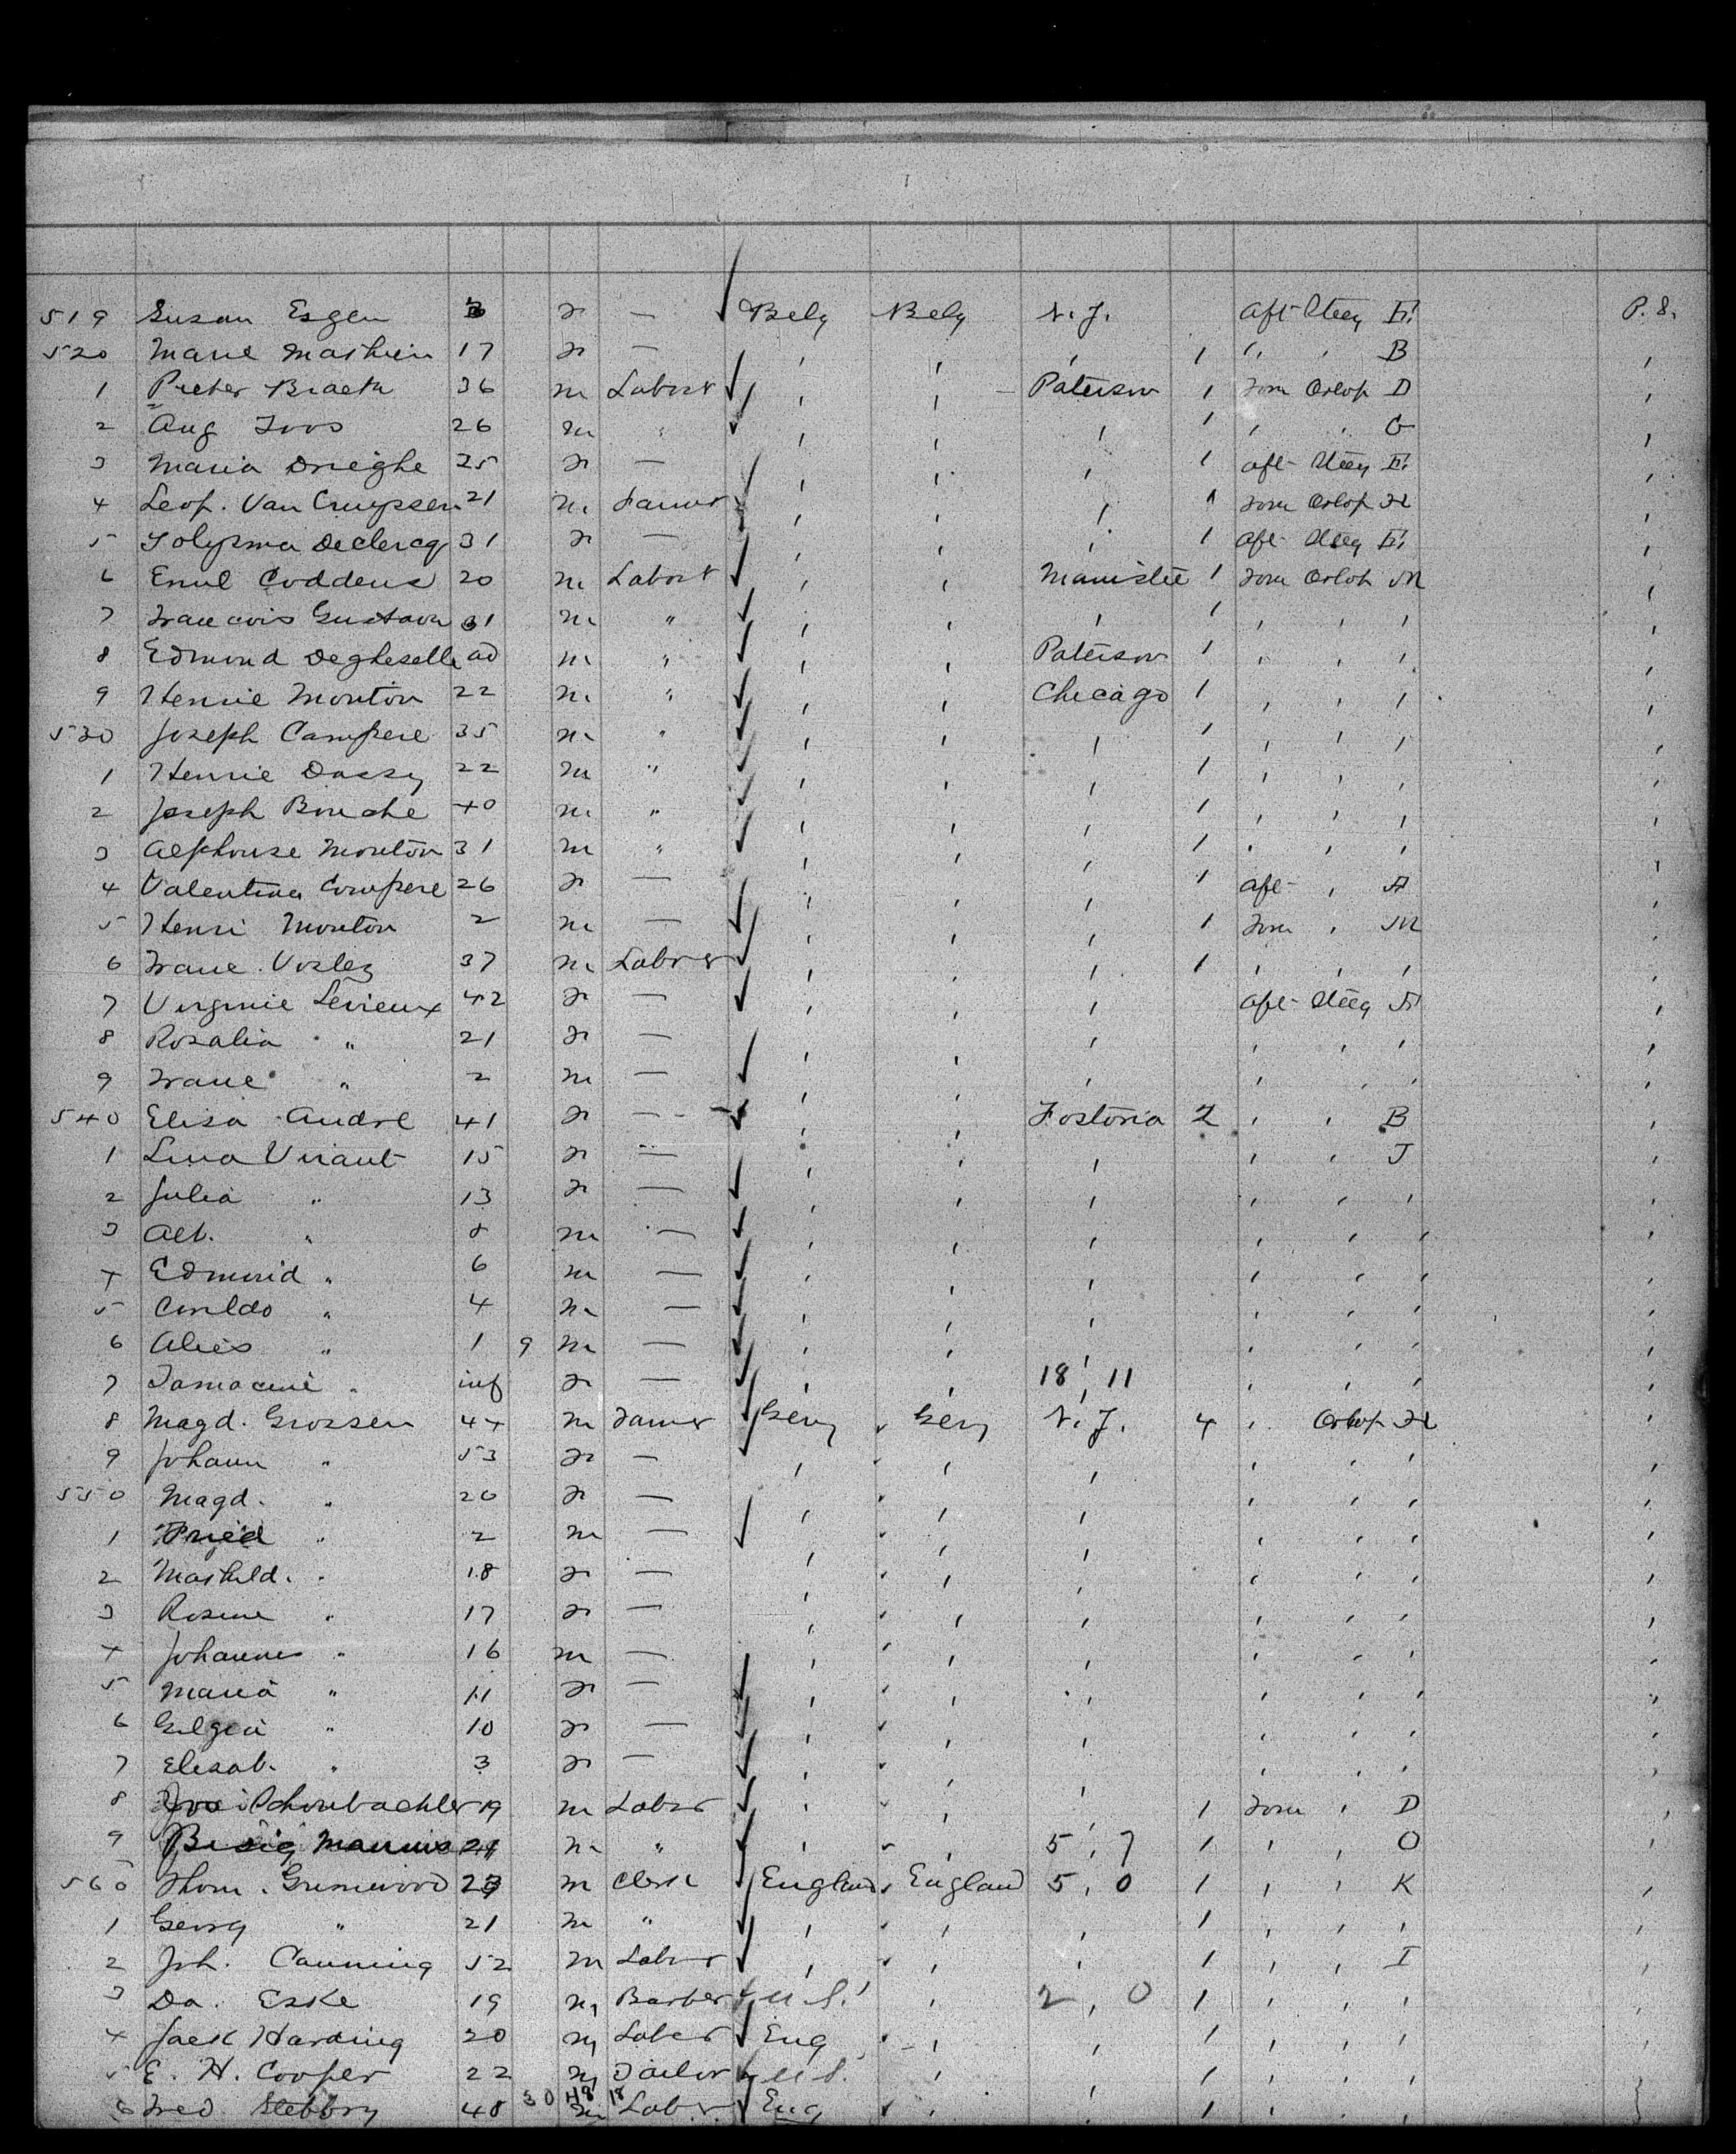 519 Susan Esgen 3 F — Belg Belg N.J. aft Steeg E P. 8.
520 Marie Mathieu 17 F — ' ' ' 1 " ' B '
1 Pieter Braeth 36 m Labor ' ' Paterson 1 Forw Orlop D '
2 Aug 26 m " ' ' ' 1 ' ' G '
3 Maria Drieghe 25 F — ' ' ' 1 aft Steeg E '
4 Leop. Van Cruyssen 21 m Farmer ' ' ' 1 Forw Orlop H '
5 Declercq 31 F — ' ' ' 1 aft Steeg E '
6 Emil Coddens 20 m Labor ' ' Manistee 1 Forw Orlop M '
7 Francois Gustave 31 m " ' ' ' 1 ' ' ' '
8 Edmond Degheselle ad m " ' ' Paterson 1 ' ' ' '
9 Henrie Mouton 22 m " ' ' Chicago 1 ' ' ' '
530 Joseph Campere 35 m " ' ' ' 1 ' ' ' '
1 Henrie Dassy 22 m " ' ' ' 1 ' ' ' '
2 Joseph Bouche 40 m " ' ' ' 1 ' ' ' '
3 Alphonse Mouton 31 m " ' ' ' 1 ' ' ' '
4 Valentina Compere 26 F — ' ' ' 1 aft ' A '
5 Henri Mouton 2 m — ' ' ' 1 Forw ' M '
6 Franc. Vosley 37 m Labor ' ' ' 1 ' ' ' '
7 Virginie Levieux 42 F — ' ' ' aft Steeg A '
8 Rosalia " 21 F — ' ' ' ' ' ' '
9 Franc " 2 m — ' ' ' ' ' ' '
540 Elisa Andre 41 F — ' ' Fostoria 2 ' ' B '
1 Lina Viraut 15 F — ' ' ' ' ' J '
2 Julia " 13 F — ' ' ' ' ' ' '
3 Alb. " 8 m — ' ' ' ' ' ' '
4 Edmond " 6 m — ' ' ' ' ' ' '
5 " 4 m — ' ' ' ' ' ' '
6 Alies " 1 9 m — ' ' ' ' ' ' '
7 " inf F — ' ' 18 ' 11 ' ' ' '
8 Magd. Grossen 44 m Farmer Gery Gery N.J. 4 ' Orlop H '
9 Johann " 53 F — ' ' ' ' ' ' '
550 Magd. " 20 F — ' ' ' ' ' ' '
1 Fried " 2 m — ' ' ' ' ' ' '
2 Mathild. " 18 F — ' ' ' ' ' ' '
3 Rosine " 17 F — ' ' ' ' ' ' '
4 Johannes " 16 m — ' ' ' ' ' ' '
5 Maria " 11 F — ' ' ' ' ' ' '
6 " 10 F — ' ' ' ' ' ' '
7 Elisab. " 3 F — ' ' ' ' ' ' '
8 Schonbachler 19 m Labor ' ' ' 1 Forw ' D '
9 Bisig 21 m " ' ' 5 ' 7 1 ' ' O '
560 Thom. Grimwood 23 m Clerk England England 5 ' 0 1 ' ' K '
1 Georg " 21 m " ' ' ' 1 ' ' ' '
2 Joh. Canning 52 m Labor ' ' ' 1 ' ' I '
3 Da. Eske 19 m Barber U.S. ' 2 ' 0 1 ' ' ' '
4 Jack Harding 20 m Labor Eng ' ' 1 ' ' ' '
5 E. H. Cooper 22 m Tailor U.S. ' ' 1 ' ' ' '
6 Fred Stebbry 48 30 48 18 m Labor Eng ' ' 1 ' ' ' '